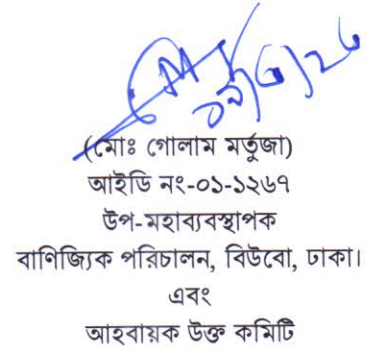 (মোঃ গোলাম মর্তুজা)
আইডি নং-০১-১২৬৭
উপ-মহাব্যবস্থাপক
বাণিজ্যিক পরিচালন, বিউবো, ঢাকা।
এবং
আহবায়ক উক্ত কমিটি